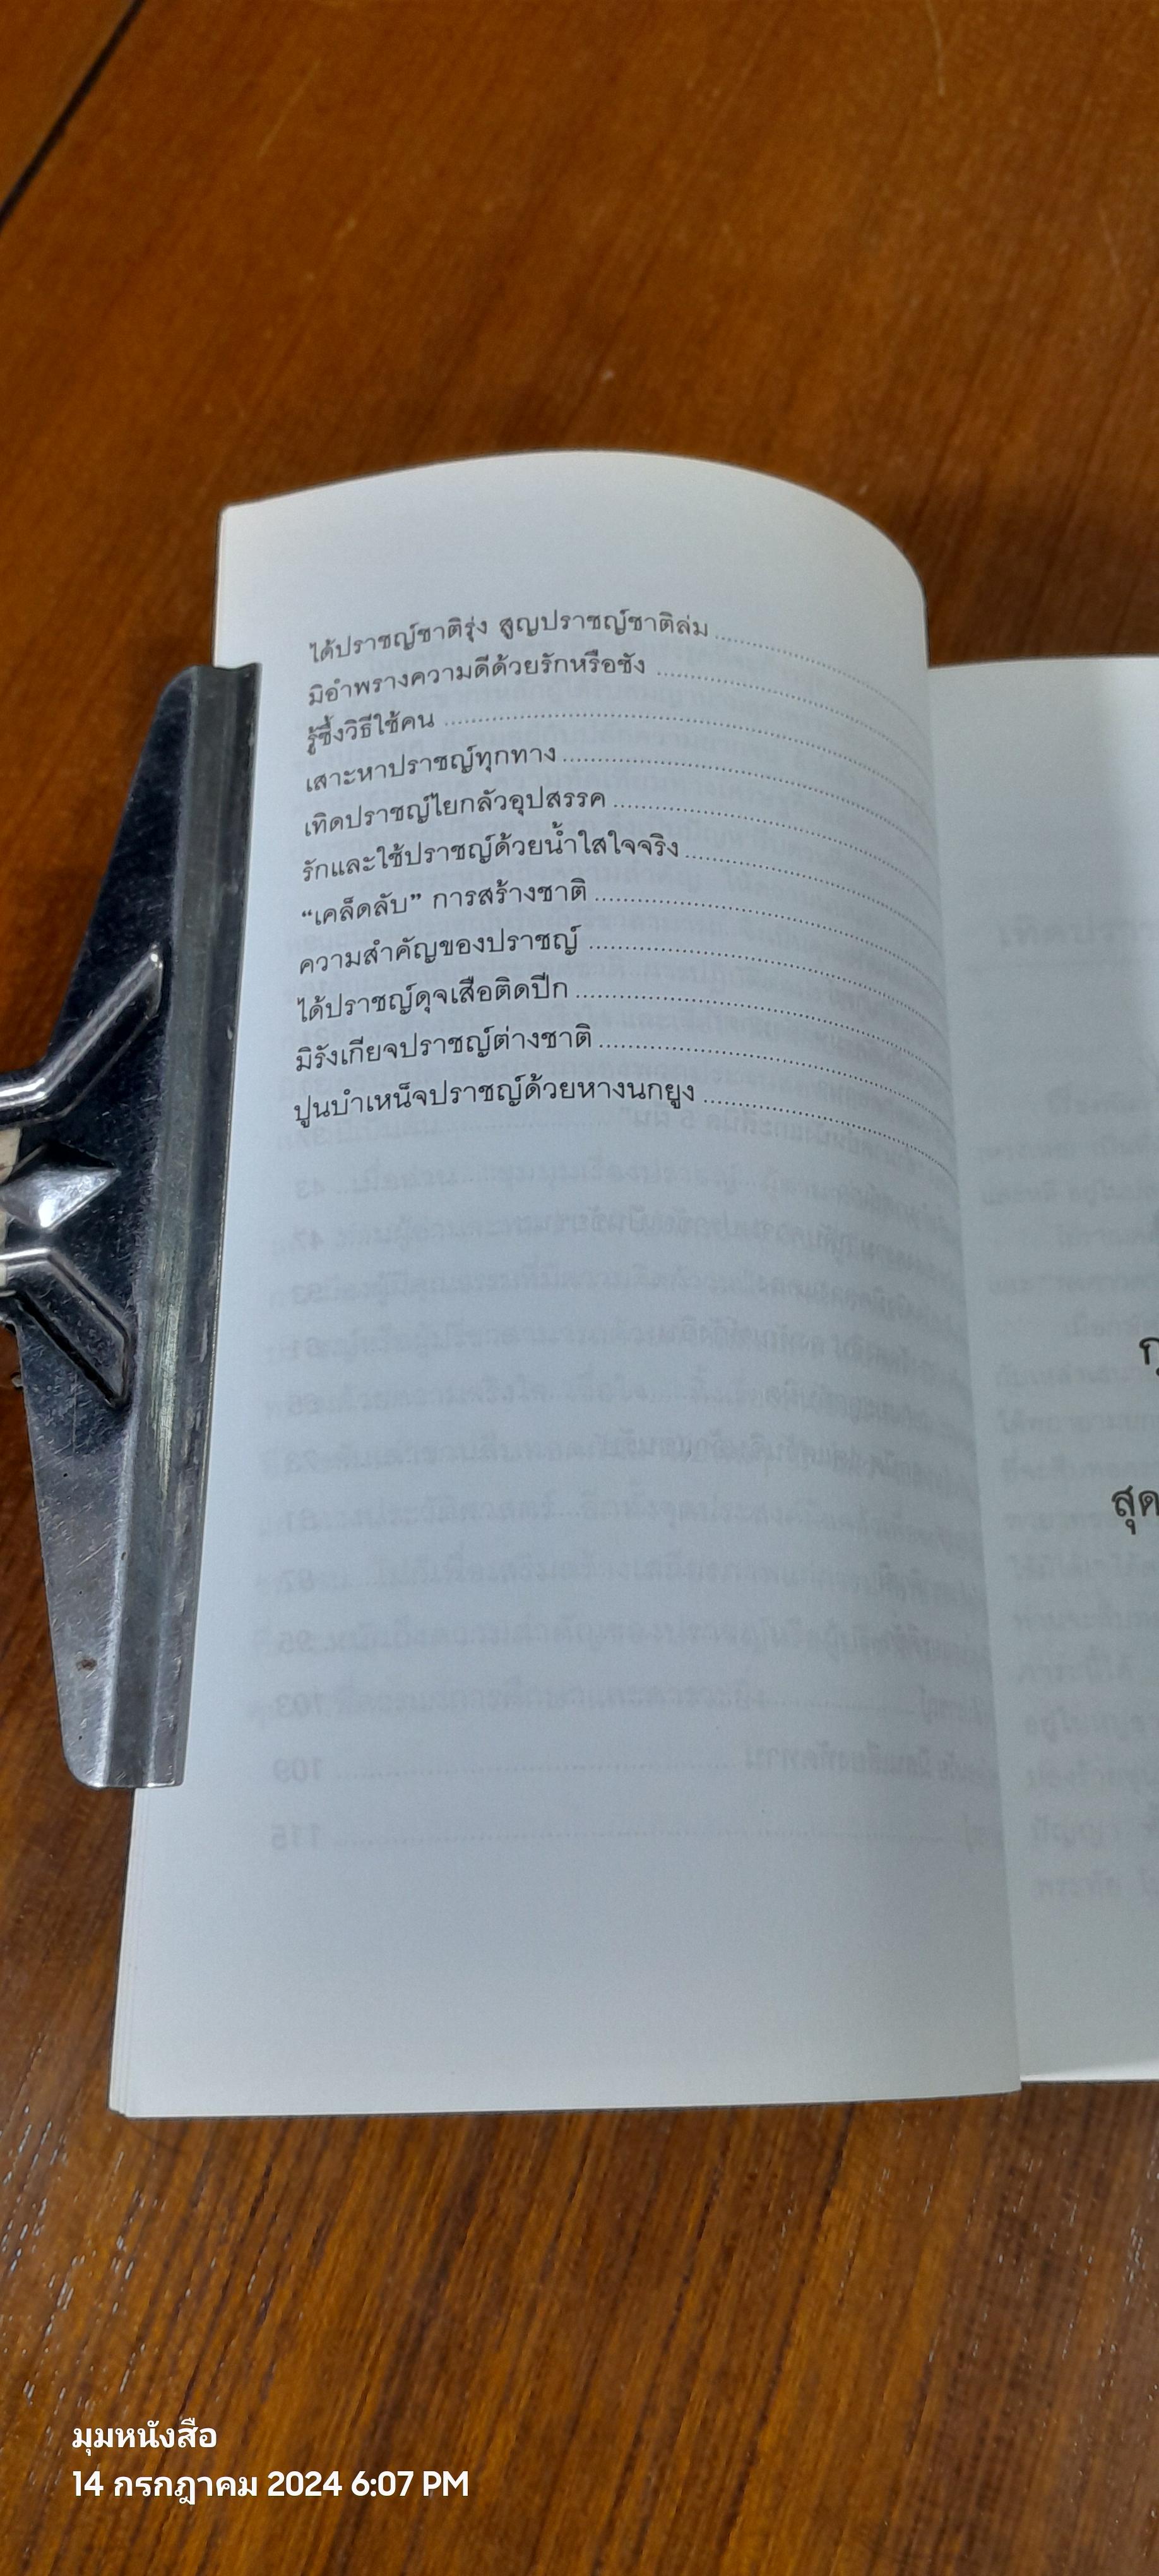 ได้ปราชญ์ชาติรุ่ง สูญปราชญ์ชาติล่ม
มิอำพรางความดีด้วยรักหรือชัง
รู้ซึ้งวิธีใช้คน
เสาะหาปราชญ์ทุกทาง
เทิดปราชญ์ไยกลัวอุปสรรค
รักและใช้ปราชญ์ด้วยน้ำใสใจจริง
“เคล็ดลับ” การสร้างชาติ
ความสำคัญของปราชญ์
ได้ปราชญ์ดุจเสือติดปีก
มิรังเกียจปราชญ์ต่างชาติ
ปูนบำเหน็จปราชญ์ด้วยหางนกยูง
สุด
มุมหนังสือ
14 กรกฎาคม 2024 6:07 PM